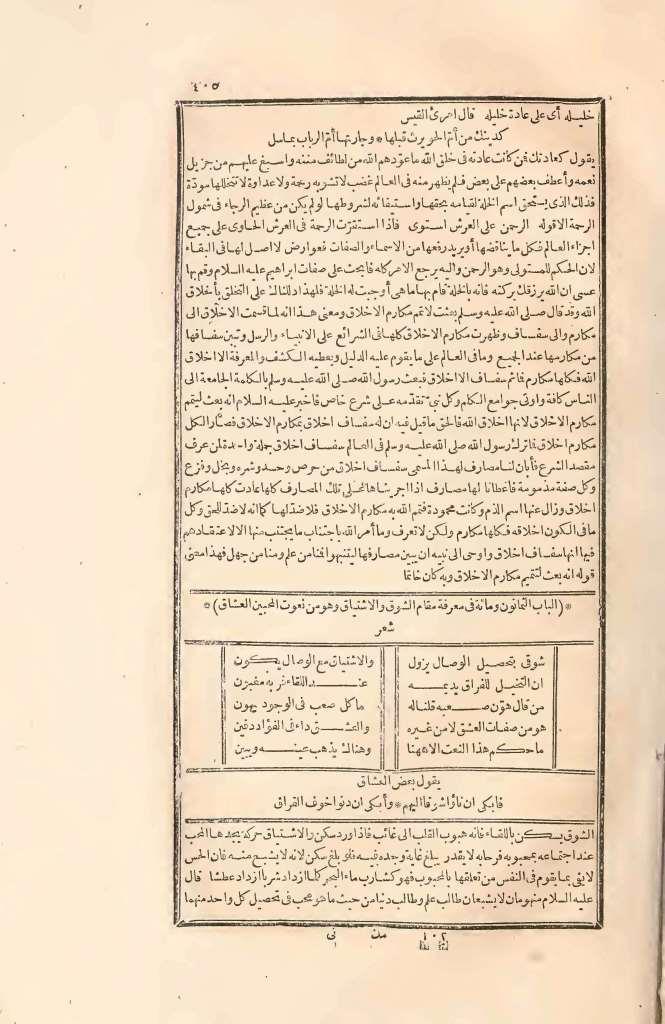 ٤٠٥
خليله أى على عادة خليله قال امرئ القيس
كدينك من أم الحويرث قبلها * وجارتها أم الرباب بماسل
يقول كعادتك فمن كانت عادته فى خلق الله ما عوّدهم الله من لطائف مننه وأسبغ عليهم من جزيل
نعمه وأعطف بعضهم على بعض فلم يظهر منه فى العالم غضب لا تشوبه رحمة ولا عداوة لا تتخللها مودّة
فذلك الذى يستحق اسم الخلة لقيامه بحقها واستيفائه لشروطها ولو لم يكن من عظيم الرجاء فى شمول
الرحمة الا قوله الرحمن على العرش استوى فاذا استقرّت الرحمة فى العرش الحاوى على جميع
اجزاء العالم فكل ما يناقضها أو يريد رفعها من الاسماء والصفات فعوارض لا اصل لها فى البقاء
لان الحكم للمستولى وهو الرحمن واليه يرجع الامر كله فابحث على صفات ابراهيم عليه السلام وقم بها
عسى ان الله يرزقك بركته فانه بالخلة قام بها ما هى أوجبت له الخلة فلهذا دللناك على التخلق بأخلاق
الله وقد قال صلى الله عليه وسلم بعثت لاتمم مكارم الاخلاق ومعنى هذا انه لما قسمت الاخلاق الى
مكارم والى سفساف وظهرت مكارم الاخلاق كلها فى الشرائع على الانبياء والرسل وتبين سفسافها
من مكارمها عند الجميع وما فى العالم على ما يقوم عليه الدليل ويعطيه الكشف والمعرفة الا اخلاق
الله فكلها مكارم فاثم سفساف اخلاق فبعث رسول الله صلى الله عليه وسلم بالكلمة الجامعة الى
الناس كافة واوتى جوامع الكلم وكل نبىّ تقدّمه على شرع خاص فاخبر عليه السلام انه بعث ليتمم
مكارم الاخلاق لانها اخلاق الله فالحق ما قيل فيه انه سفساف اخلاق بمكارم الاخلاق فصار الكل
مكارم اخلاق فما ترك رسول الله صلى الله عليه وسلم فى العالم سفساف اخلاق جملة واحدة لمن عرف
مقصد الشرع فأبان لنا مصارف لهذا المسمى سفساف اخلاق من حرص وحسد وشره وبخل وفزع
وكل صفة مذمومة فاعطانا لها مصارف اذا اجريناها على تلك المصارف كلها عادت كلها مكارم
اخلاق وزال عنها اسم الذم وكانت محمودة فتمم الله به مكارم الاخلاق فلا ضدّ لها كما انه لا ضدّ للحق وكل
ما فى الكون اخلاقه فكلها مكارم ولكن لا تعرف وما أمر الله باجتناب ما يجتنب منها الا لاعتقادهم
فيها انها سفساف اخلاق واوحى الى نبيه ان يبين مصارفها ليتنبهوا فمنا من علم ومنا من جهل فهذا معنى
قوله انه بعث لتتميم مكارم الاخلاق وبه كان خاتما
* (الباب الثمانون ومائة فى معرفة مقام الشوق والاشتياق وهو من نعوت المحبين العشاق) *
شعر
شوقى بتحصيل الوصال يزول والاشتياق مع الوصال يكون
ان التخيل للفراق يديمه عند اللقاء فربه مغبون
من قال هوّن صعبه قلنا له ما كل صعب فى الوجود يهون
هو من صفات العشق لا من غيره والعشق داء فى الفؤاد دفين
ما حكم هذا النعت الا ههنا وهناك يذهب عينه ويبين
يقول بعض العشاق
فابكى ان نأوا شوقا اليهم * وأبكى ان دنوا خوف الفراق
الشوق يسكن باللقاء فانه هبوب القلب الى غائب فاذا ورد سكن والاشتياق حركة يجدها المحب
عند اجتماعه بمحبوبه فرحا به لا يقدر يبلغ غاية وجده فيه فلو بلغ سكن لانه لا يشبع منه فان الحس
لا يفى بما يقوم فى النفس من تعلقها بالمحبوب فهو كشارب ماء البحر كلما ازداد شربا ازداد عطشا قال
عليه السلام منهومان لا يشبعان طالب علم وطالب دنيا من حيث ما هو محب فى تحصيل كل واحد منهما
١٠٢ مك نى